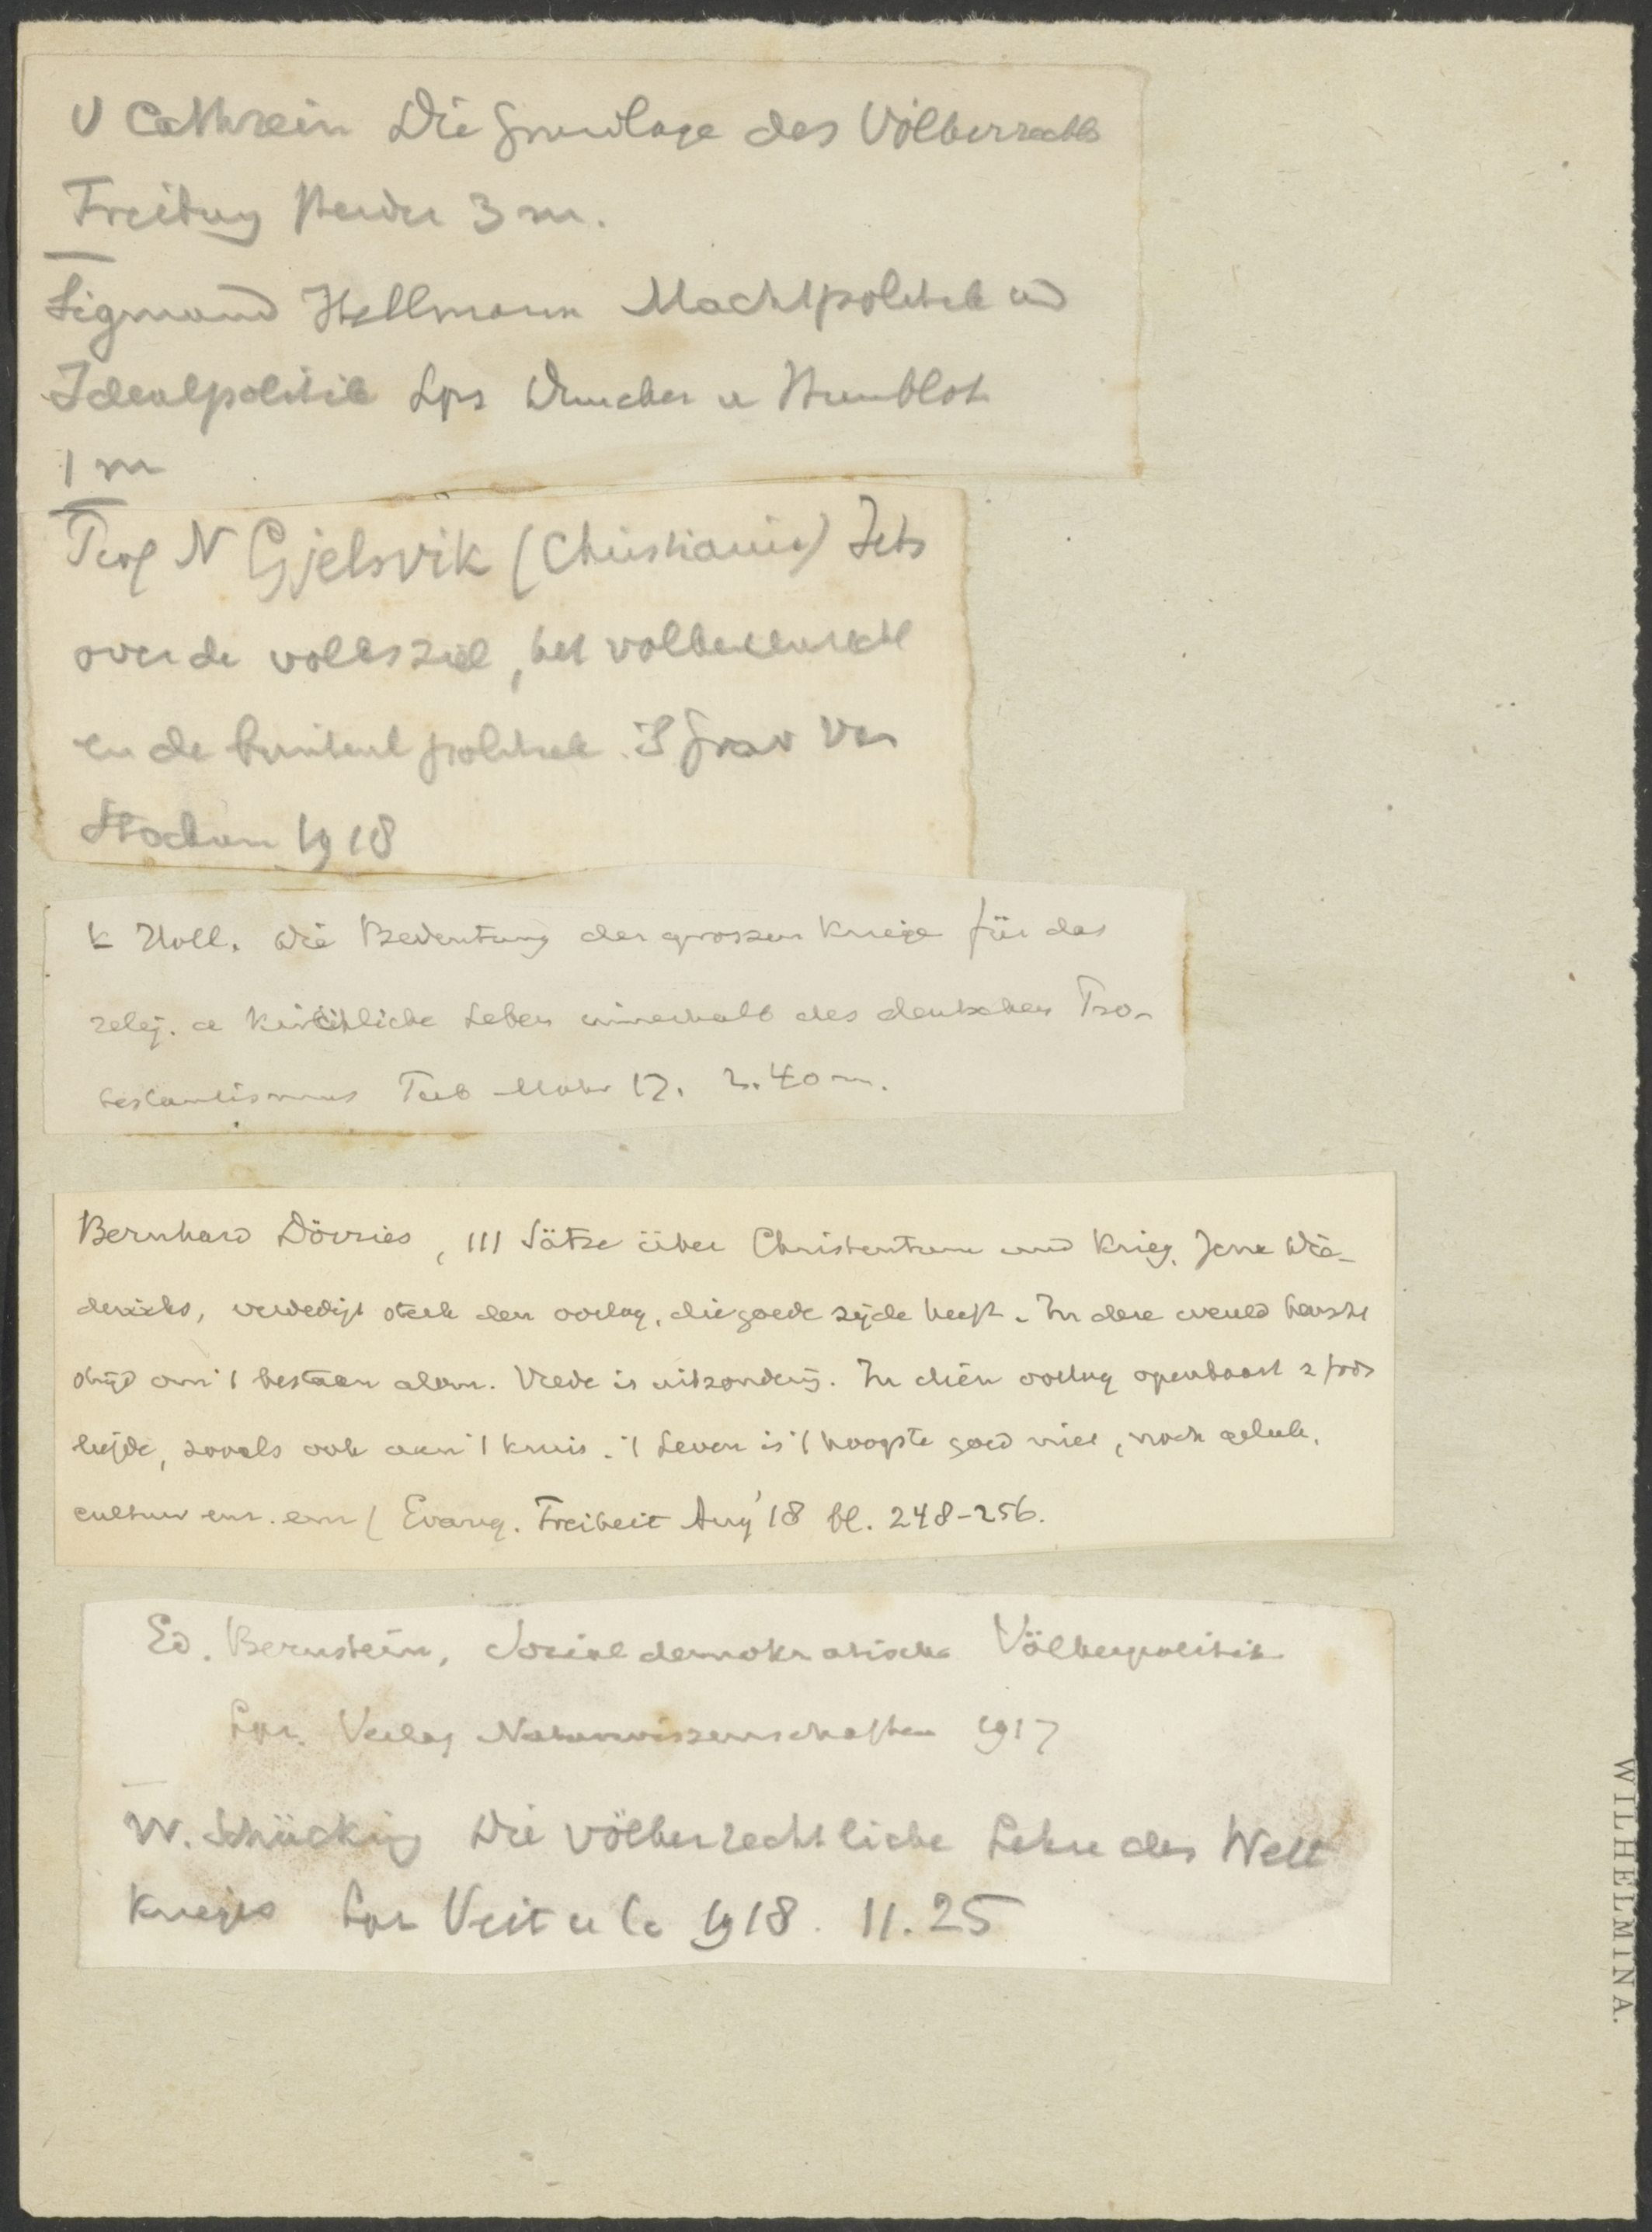 V Cathrein Die Grundlage des Völkerrechts
Freiburg Herder 3 m.
Sigmund Hellmann Machtpolitik und
Idealpolitik Lpz Duncker u Humblot
1 m
Prof N Gjelsvik (Christiania) Iets
over de volksziel, het volkenrecht
en de buitenl politiek.
Stockon 1918
K Holl. Die Bedeutung der grossen Kriege für das
relig. u kirchliche Leben innerhalb des deutschen Pro-
testantismus Tub Mohr 17. 2.40 m.
Bernhard Dörries, 111 Sätze über Christentum und Krieg, Jena Die-
derichs, verdedigt sterk den oorlog, die goede zijde heeft. In deze wereld heerscht
strijd om 't bestaan alom. Vrede is uitzonderg. In dien oorlog openbaart z Gods
liefde, zooals ook aan 't kruis. 't Leven is 't hoogste goed niet, noch geluk,
cultuur enz. enz ( Evang. Freiheit Aug '18 bl. 248-256.
Ed. Bernstein, Socialdemokratische Völkerpolitik
Lpz. Verlag Naturwissenschaften 1917
W. Schücking Die völkerrechtliche Lehre des Welt
krieges Lpz Veit u Co 1918. 11.25
WILHELMINA.